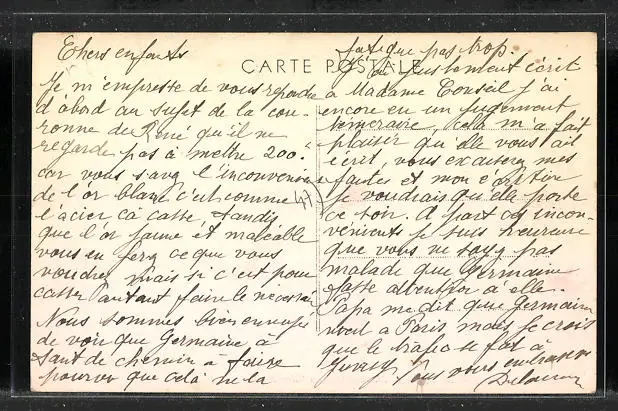 Chers enfants
CARTE POSTALE
Je m'empresse de vous repondre
d'abord au sujet de la cou-
ronne de René qu'il ne
regarde pas à mettre 200.
car vous savez l'inconvenient
de l'or blanc c'est comme
l'acier ca casse, tandis
que l'or jaune et maléable
vous en ferez ce que vous
voudrez mais si c'est pour
casser autant faire le nécessaire
Nous sommes bien ennuyés
de voir que Germaine à
tant de chemin à faire
pourvu que celà ne la
47
fatigue pas trop.
J'ai justement écrit
a Madame Conseil j'ai
encore eu un jugement
temeraire, cela m'a fait
plaisir qu'elle vous ait
écrit, vous excuserez mes
fautes et mon écriture
je voudrais qu'elle parte
ce soir. A part ces incon-
venients je suis heureuse
que vous ne soyez pas
malade que Germaine
fasse attention à elle.
Papa me dit que Germaine
vient a Paris mais je crois
que le trafic se fait à
Juvisy Tous vous embrassons